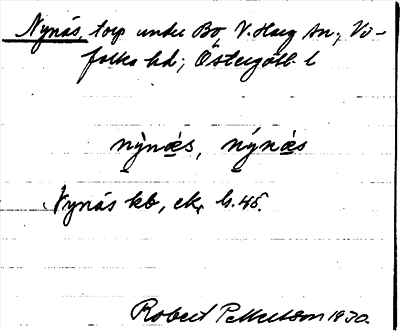 Nynäs, torp under Bo, V. Harg sn, Vi-
folka hd; Östergötl. l
nỳnäs, nýnäs
Nynäs kb, ek, h. 45.
Robert Pettersson 1930.